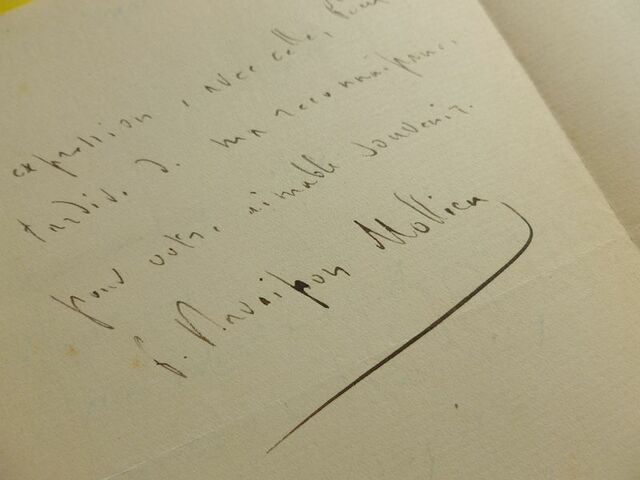 expression, avec celle,
tardive de ma reconnaissance,
pour votre aimable souvenir.
F. Ravaisson Mollien